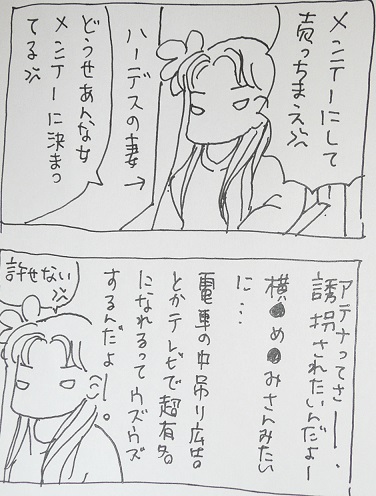 メンテーにして
売っちまえ
ハーデスの妻→
どうせあんな女
メンテーに決まっ
てる
アテナってさー、
誘拐されたいんだよー
横●め●みさんみたい
に…
電車の中吊り広告
とかテレビで超有名
になれるってウズウズ
するんだよー。
許せない